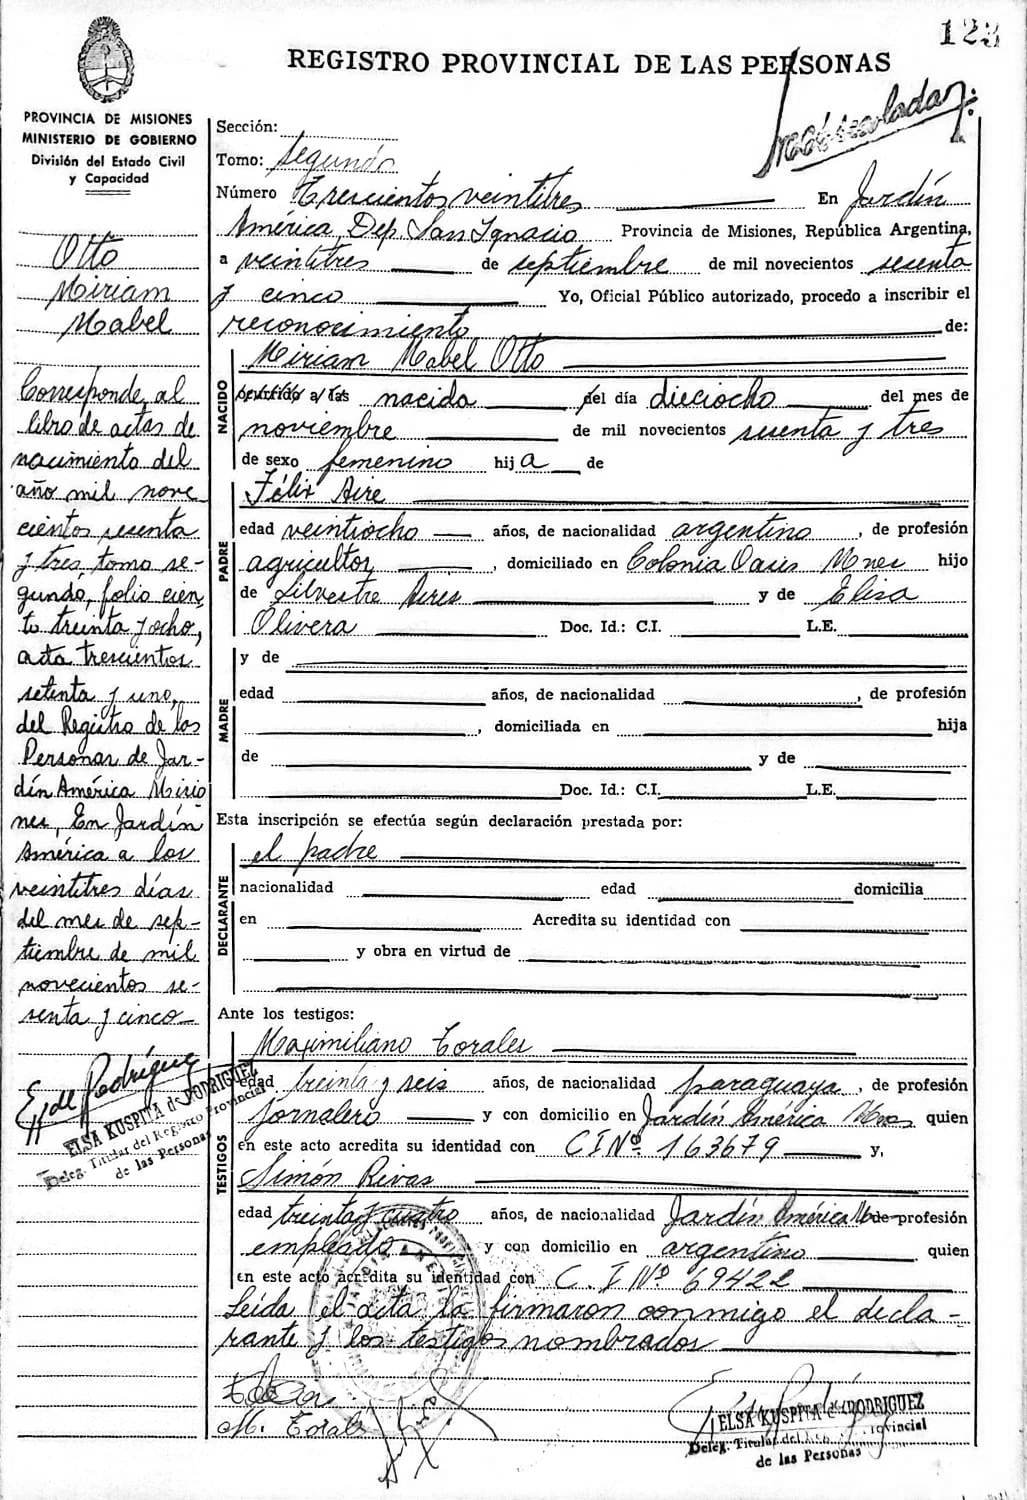 123
REGISTRO PROVINCIAL DE LAS PERSONAS
PROVINCIA DE MISIONES
MINISTERIO DE GOBIERNO
División del Estado Civil
y Capacidad
Otto
Miriam
Mabel
Corresponde al
libro de actas de
nacimiento del
año mil nove
cientos sesenta
y tres, tomo se-
gundo, folio cien
to treinta y ocho,
acta trescientos
setenta y uno,
del Registro de las
Personas de Jar-
dín América Misio
nes, En Jardín
América a los
veintitres días
del mes de sep-
tiembre de mil
novecientos se-
senta y cinco
E de Rodríguez
ELSA KUSPITA de RODRIGUEZ
Deleg. Titular del Registro Provincial
de las Personas
Sección:
Tomo: Segundo
Número Trescientos veintitres En Jardín
América, Dep. San Ignacio Provincia de Misiones, República Argentina,
a veintitres de septiembre de mil novecientos sesenta
y cinco Yo, Oficial Público autorizado, procedo a inscribir el
reconocimiento de:
Miriam Mabel Otto
NACIDO
ocurrido a las nacida del día dieciocho del mes de
noviembre de mil novecientos sesenta y tres
de sexo femenino hija de
Félix Aire
PADRE
edad veintiocho años, de nacionalidad argentino, de profesión
agricultor, domiciliado en Colonia Oasis Mnes hijo
de Silvestre Aires y de Elisa
Olivera Doc. Id.: C.I. L.E.
y de
MADRE
edad años, de nacionalidad, de profesión
, domiciliada en hija
de y de
Doc. Id.: C.I. L.E.
Esta inscripción se efectúa según declaración prestada por:
el padre
DECLARANTE
nacionalidad edad domicilia
en Acredita su identidad con
y obra en virtud de
Ante los testigos:
Maximiliano Torales
TESTIGOS
edad treinta y seis años, de nacionalidad paraguaya, de profesión
jornalero y con domicilio en Jardín América Mnes quien
en este acto acredita su identidad con C I Nº 163679 y,
Simón Rivas
edad treinta y cuatro años, de nacionalidad Jardín América de profesión
empleado y con domicilio en argentino quien
en este acto acredita su identidad con C. I Nº 69422
Leída el acta la firmaron conmigo el decla-
rante y los testigos nombrados
M. Torales
ELSA KUSPITA de RODRIGUEZ
Deleg. Titular del Provincial
de las Personas